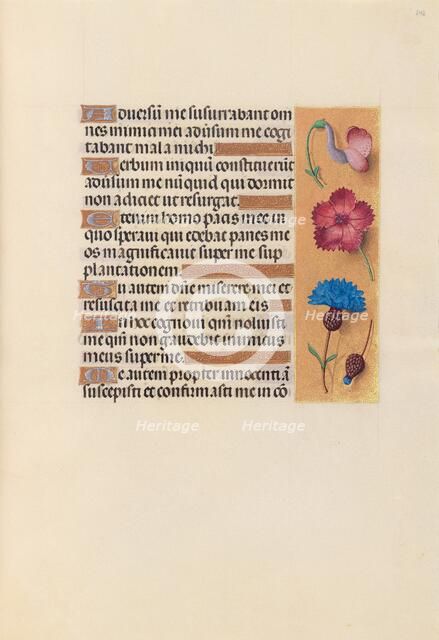 Aduersũ me susurrabant om
nes inimici mei adũsum me cogi
tabant mala michi
Verbum iniquũ constituerũt
adũsum me nũquid qui dormit
non adiciet ut resurgat
Etenim homo pacis mee in
quo speraui qui edebat panes me
os magnificauit super me sup
plantationem
Tu autem dñe miserere mei et
resuscita me et retribuam eis
In hoc cognoui qm̃ voluisti
me qm̃ non gaudebit inimicus
meus super me
Me autem propter innocentiã
suscepisti et confirmasti me in cõ
Heritage Heritage
Heritage Heritage
Heritage Heritage